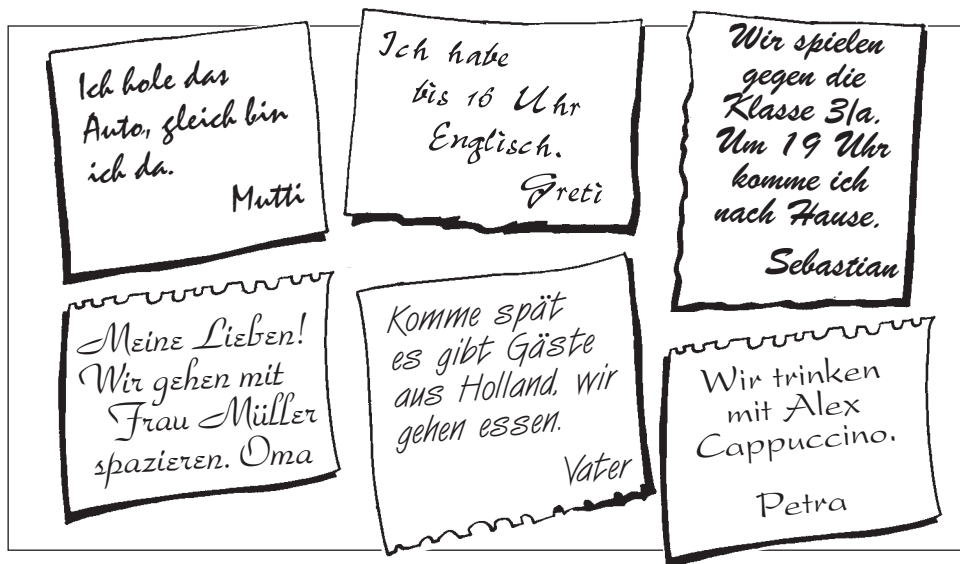 Ich hole das
Auto, gleich bin
ich da.
Mutti
Ich habe
bis 16 Uhr
Englisch.
Greti
Wir spielen
gegen die
Klasse 3/a.
Um 19 Uhr
komme ich
nach Hause.
Sebastian
Meine Lieben!
Wir gehen mit
Frau Müller
spazieren. Oma
Komme spät
es gibt Gäste
aus Holland, wir
gehen essen.
Vater
Wir trinken
mit Alex
Cappuccino.
Petra